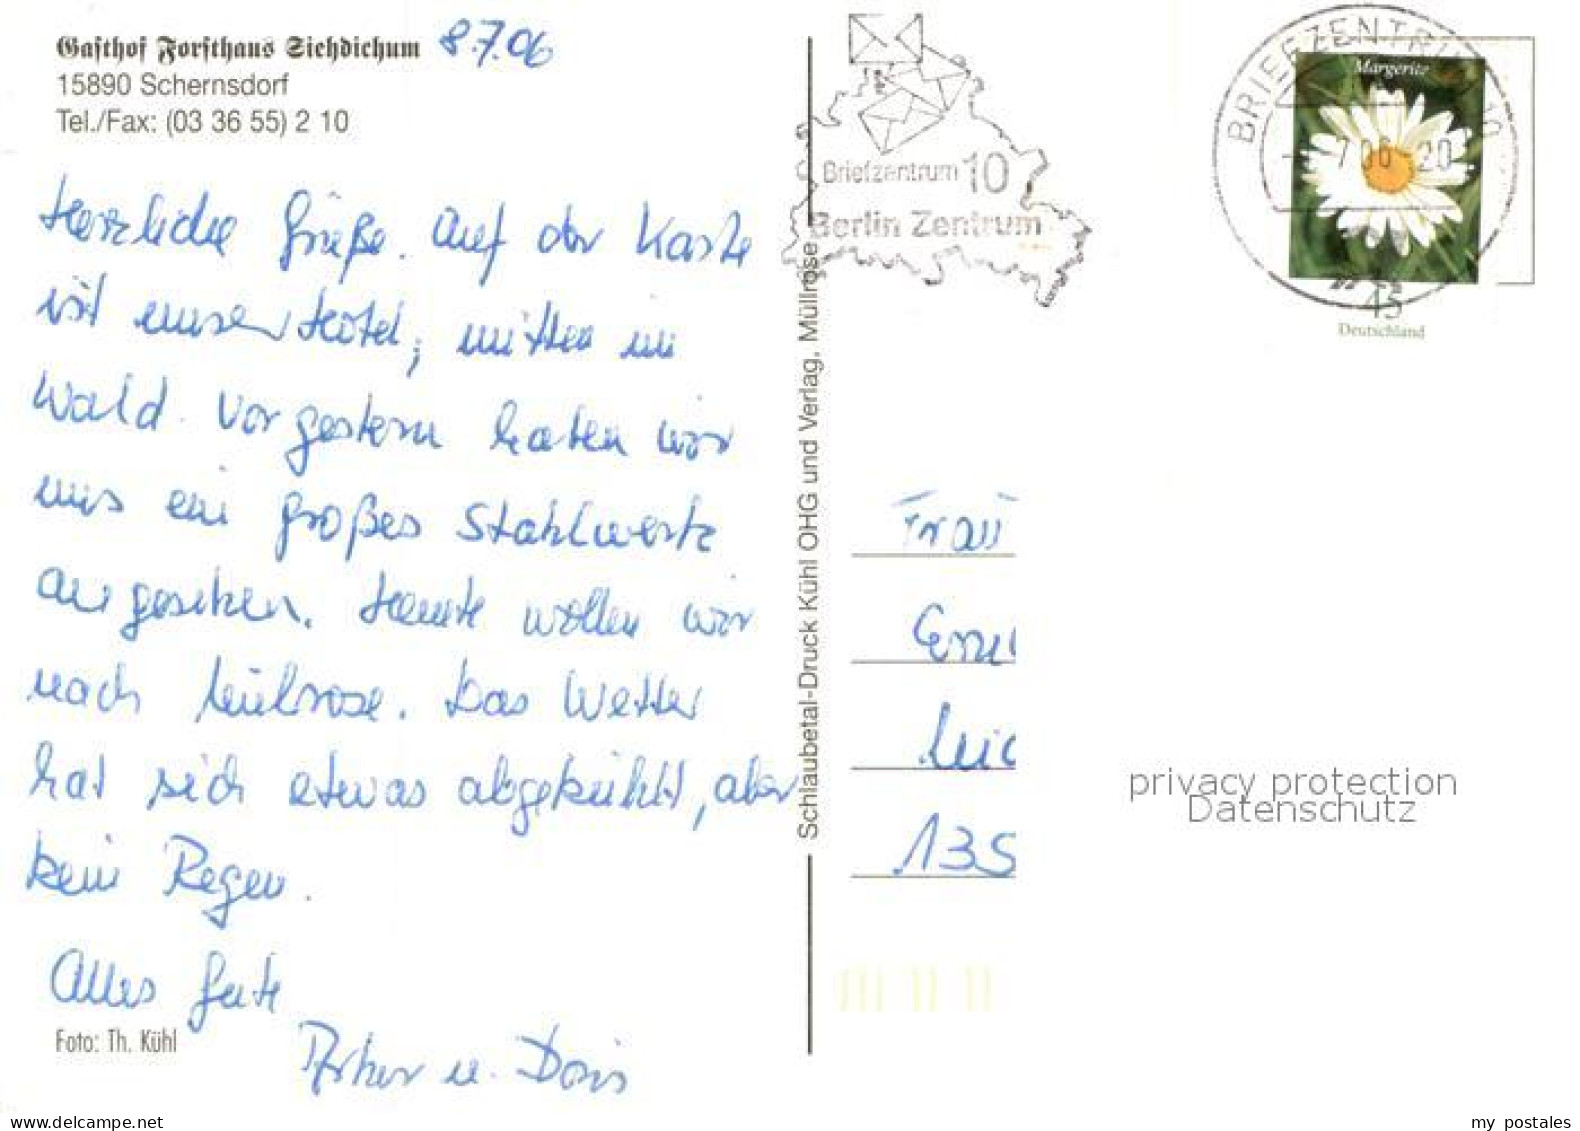 Gasthof Forsthaus Siehdichum 8.7.06
15890 Schernsdorf
Tel./Fax: (03 36 55) 2 10
Herzliche Grüße. Auf der Karte
ist unser Hotel, mitten im
Wald. Vorgestern haben wir
uns ein großes Stahlwerk
angesehen. Heute wollen wir
nach Müllrose. Das Wetter
hat sich etwas abgekühlt, aber
kein Regen.
Alles Gute
u. Doris
Foto: Th. Kühl
Schlaubetal-Druck Kühl OHG und Verlag, Müllrose
Briefzentrum 10
Berlin Zentrum
BRIEFZENTRUM 10
Margerite
45
Deutschland
Frau
135
privacy protection
Datenschutz
my postales